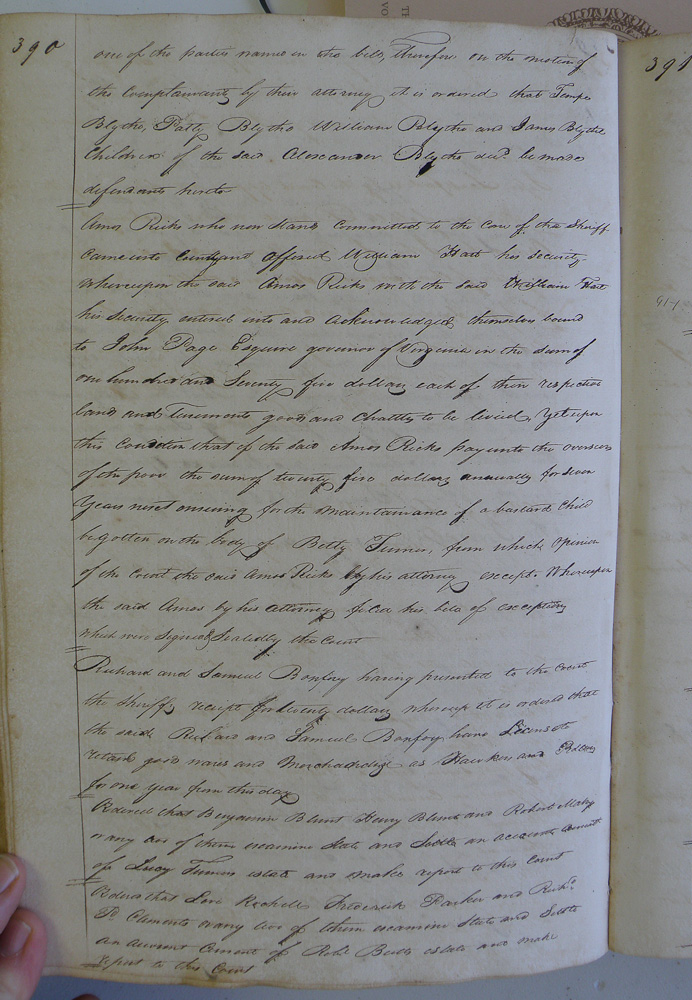 390
one of the parties named in the bill, therefore on the motion of
the Complainants by their attorney it is ordered that Tempe
Blythe, Patty Blythe William Blythe and James Blythe
Children of the said Alexander Blythe decd. be made
defendants hereto
Amos Ricks who now stands Committed to the Care of the Sheriff
Came into Court and offered William Hart his security
Whereupon the said Amos Ricks with the said William Hart
his Security entered into and acknowledged themselves bound
to John Page Esquire governor of Virginia in the sum of
one hundred and Seventy five dollars each of their respective
lands and Tenements goods and Chattles to be levied, Yet upon
this Condition that if the said Amos Ricks pay unto the overseers
of the poor the sum of twenty five dollars annually for seven
Years next ensuing for the maintainance of a bastard Child
begotten on the body of Betty Turner, from which opinion
of the Court the said Amos Ricks by his attorney except. Whereupon
the said Amos by his attorney filed his bill of exceptions
which were Signed & Sealed by the Court
Richard and Samuel Bonfoy having presented to the Court
the Sheriffs receipt for twenty dollars whereup it is ordered that
the said Richard and Samuel Bonfoy have License to
retail goods wares and Merchandize as Hawkers and Pedlars
for one year from this day
Ordered that Benjamin Blunt Henry Blunt and Robert
or any two of them examine State and Settle an account Current
of Lucy Turners estate and make report to this Court
Ordered that Love Kachell Frederick Parker and Richd.
P. Clements or any two of them examine State and Settle
an account Current of Robt. Butts estate and make
report to this Court
391